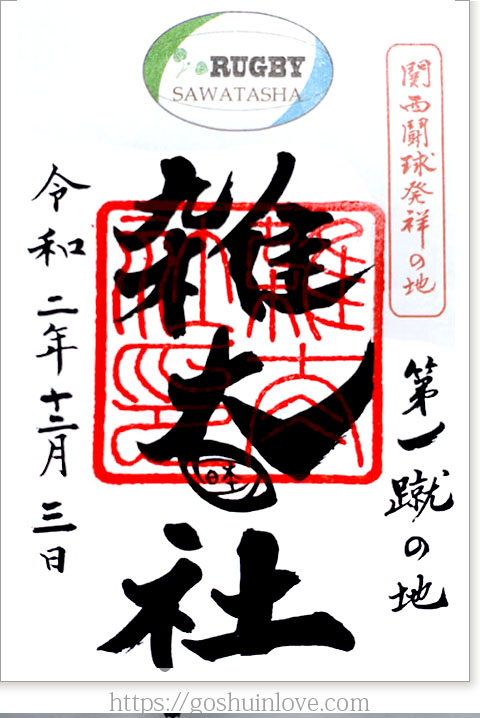 RUGBY
SAWATASHA
関西闘球発祥の地
第一蹴の地
雑太社
日本
令和二年十二月三日
https://goshuinlove.com